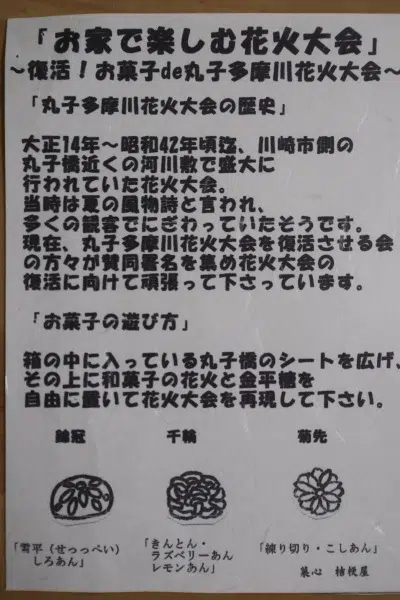 「お家で楽しむ花火大会」
～復活！お菓子de丸子多摩川花火大会～
「丸子多摩川花火大会の歴史」
大正14年～昭和42年頃迄、川崎市側の
丸子橋近くの河川敷で盛大に
行われていた花火大会。
当時は夏の風物詩と言われ、
多くの観客でにぎわっていたそうです。
現在、丸子多摩川花火大会を復活させる会
の方々が賛同署名を集め花火大会の
復活に向けて頑張って下さっています。
「お菓子の遊び方」
箱の中に入っている丸子橋のシートを広げ、
その上に和菓子の花火と金平糖を
自由に置いて花火大会を再現して下さい。
錦冠 千輪 菊先
「雪平（せっっぺい）
しろあん」
「きんとん・
ラズベリーあん
レモンあん」
「練り切り・こしあん」
菓心 桔梗屋